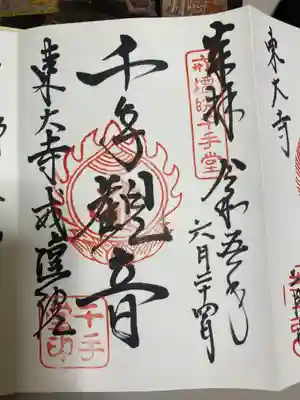 東大寺
奉拝 令和五年
六月二十四日
戒壇院千手堂
千手觀音
東大寺戒壇院
千手
堂印